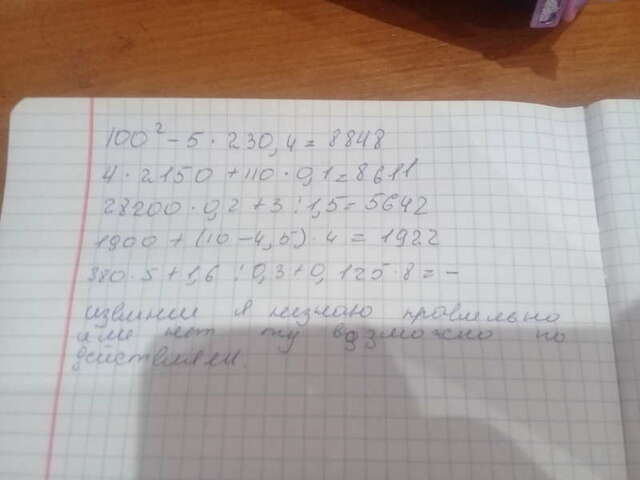 100² - 5 · 230,4 = 8848
4 · 2150 + 110 · 0,1 = 8611
28200 · 0,2 + 3 : 1,5 = 5642
1900 + (10 - 4,5) · 4 = 1922
380 · 5 + 1,6 : 0,3 + 0,125 · 8 = -
извини я незнаю правильно
или нет ту возможно по
действиям